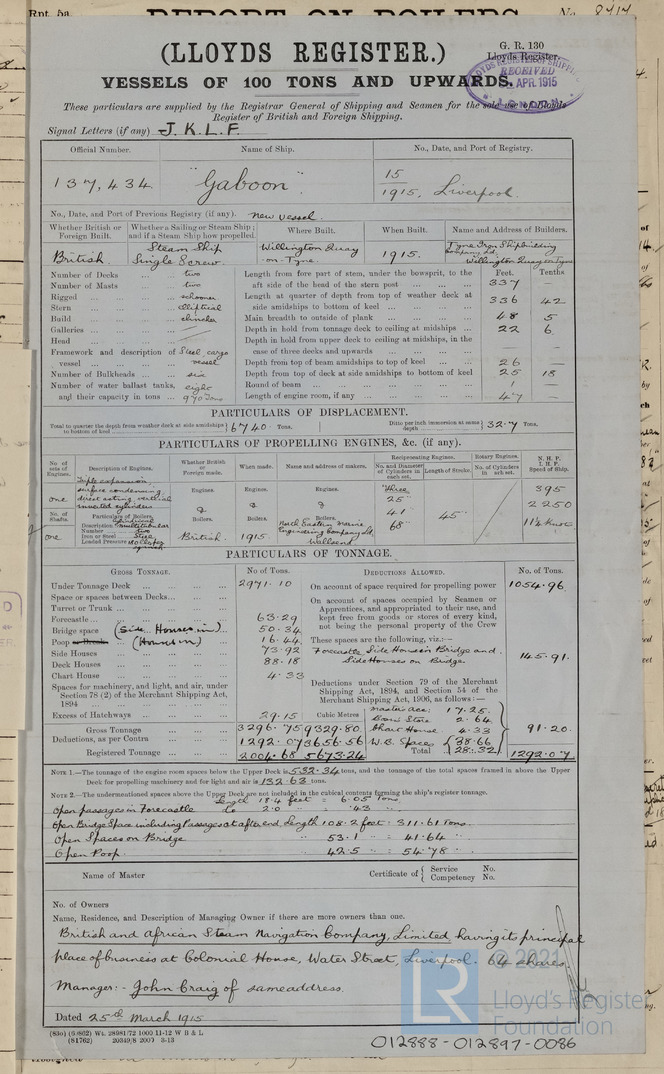 Rpt. 5a. REPORT ON BOILERS No. 8414
G. R. 130
(LLOYDS REGISTER.)
Lloyds Register.
VESSELS OF 100 TONS AND UPWARDS.
LLOYDS REGISTER OF SHIPPING
RECEIVED
APR. 1915
These particulars are supplied by the Registrar General of Shipping and Seamen for the sole use of Lloyds
Register of British and Foreign Shipping.
Signal Letters (if any) J. K. L. F.
Official Number. Name of Ship. No., Date, and Port of Registry.
137,434 "Gaboon". 15
1915. Liverpool.
No., Date, and Port of Previous Registry (if any). new vessel.
Whether British or Foreign Built. Whether a Sailing or Steam Ship; and if a Steam Ship how propelled. Where Built. When Built. Name and Address of Builders.
British Steam Ship Single Screw. Willington Quay -on-Tyne. 1915. Tyne Iron Shipbuilding Company Ld. Willington Quay on Tyne
Number of Decks two
Number of Masts two
Rigged schooner
Stern elliptical
Build clincher
Galleries
Head
Framework and description of vessel Steel cargo vessel
Number of Bulkheads six
Number of water ballast tanks, and their capacity in tons eight 970 tons
Feet. Tenths
Length from fore part of stem, under the bowsprit, to the aft side of the head of the stern post 337 —
Length at quarter of depth from top of weather deck at side amidships to bottom of keel 336 42
Main breadth to outside of plank 48 5
Depth in hold from tonnage deck to ceiling at midships 22 6
Depth in hold from upper deck to ceiling at midships, in the case of three decks and upwards — —
Depth from top of beam amidships to top of keel 26 —
Depth from top of deck at side amidships to bottom of keel 25 18
Round of beam 1 —
Length of engine room, if any 47 —
PARTICULARS OF DISPLACEMENT.
Total to quarter the depth from weather deck at side amidships to bottom of keel 6740 Tons. Ditto per inch immersion at same depth 32.7 Tons.
PARTICULARS OF PROPELLING ENGINES, &c. (if any).
No. of sets of Engines. Description of Engines. Whether British or Foreign made. When made. Name and address of makers. Reciprocating Engines. Rotary Engines. N. H. P. I. H. P. Speed of Ship.
No. and Diameter of Cylinders in each set. Length of Stroke. No. of Cylinders in each set.
one Triple expansion surface condensing direct acting vertical inverted cylinders Engines. Engines. Engines. Three 25" 41 68" 45" 395 2250 11½ Knots
No. of Shafts. Particulars of Boilers. Boilers. Boilers. Boilers.
one Description Cylindrical multitubular
Number two
Iron or Steel Steel
Loaded Pressure
British. 1915. North Eastern Marine Engineering Company Ld Wallsend
PARTICULARS OF TONNAGE.
GROSS TONNAGE. No of Tons. DEDUCTIONS ALLOWED. No. of Tons.
Under Tonnage Deck 2971.10 On account of space required for propelling power 1054.96
Space or spaces between Decks
Turret or Trunk
Forecastle 63.29
Bridge space (Side Houses in) 50.34
Poop or Break (Houses in) 16.44
Side Houses 73.92
Deck Houses 88.18
Chart House 4.33
Spaces for machinery, and light, and air, under Section 78 (2) of the Merchant Shipping Act, 1894
Excess of Hatchways 29.15
On account of spaces occupied by Seamen or Apprentices, and appropriated to their use, and kept free from goods or stores of every kind, not being the personal property of the Crew
These spaces are the following, viz.:—
Forecastle Side Houses in Bridge and Side Houses on Bridge. 145.91.
Deductions under Section 79 of the Merchant Shipping Act, 1894, and Section 54 of the Merchant Shipping Act, 1906, as follows:—
Master acc: 17.25.
Bosn's Store 2.64
Chart House 4.33
W. B. Space 38.66
28.32
91.20.
Cubic Metres
Gross Tonnage 3296.75 9329.80
Deductions, as per Contra 1292.07 3656.56
Registered Tonnage 2004.68 5673.24
Total 1292.07
NOTE 1.—The tonnage of the engine room spaces below the Upper Deck is 532.34 tons, and the tonnage of the total spaces framed in above the Upper
Deck for propelling machinery and for light and air is 132.63 tons.
NOTE 2.—The undermentioned spaces above the Upper Deck are not included in the cubical contents forming the ship's register tonnage.
Open passages in Forecastle Length 18.4 feet = 6.05 Tons.
Do 2.0 " = .43 "
Open Bridge Space including Passages at after end. Length 108.2 feet = 311.61 Tons.
Open Spaces on Bridge " 53.1 " = 41.64 "
Open Poop. " 42.5 " = 54.78 "
Name of Master Certificate of { Service No.
Competency No.
No. of Owners
Name, Residence, and Description of Managing Owner if there are more owners than one.
British and African Steam Navigation Company, Limited having its principal
place of business at Colonial House, Water Street, Liverpool. 64 shares.
Manager:- John Craig of same address.
Dated 25th March 1915
© 2021
LR
Lloyd's Register
Foundation
012888-012897-0086